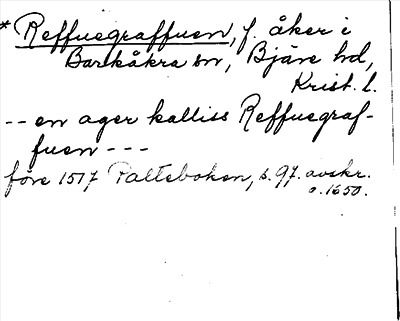 * Reffuegraffuen, f. åker i
Barkåkra sn, Bjäre hd,
Krist. l.
-- en ager kalliss Reffuegraf-
fuen ---
före 1517 Palteboken, s. 97. avskr.
o. 1650.